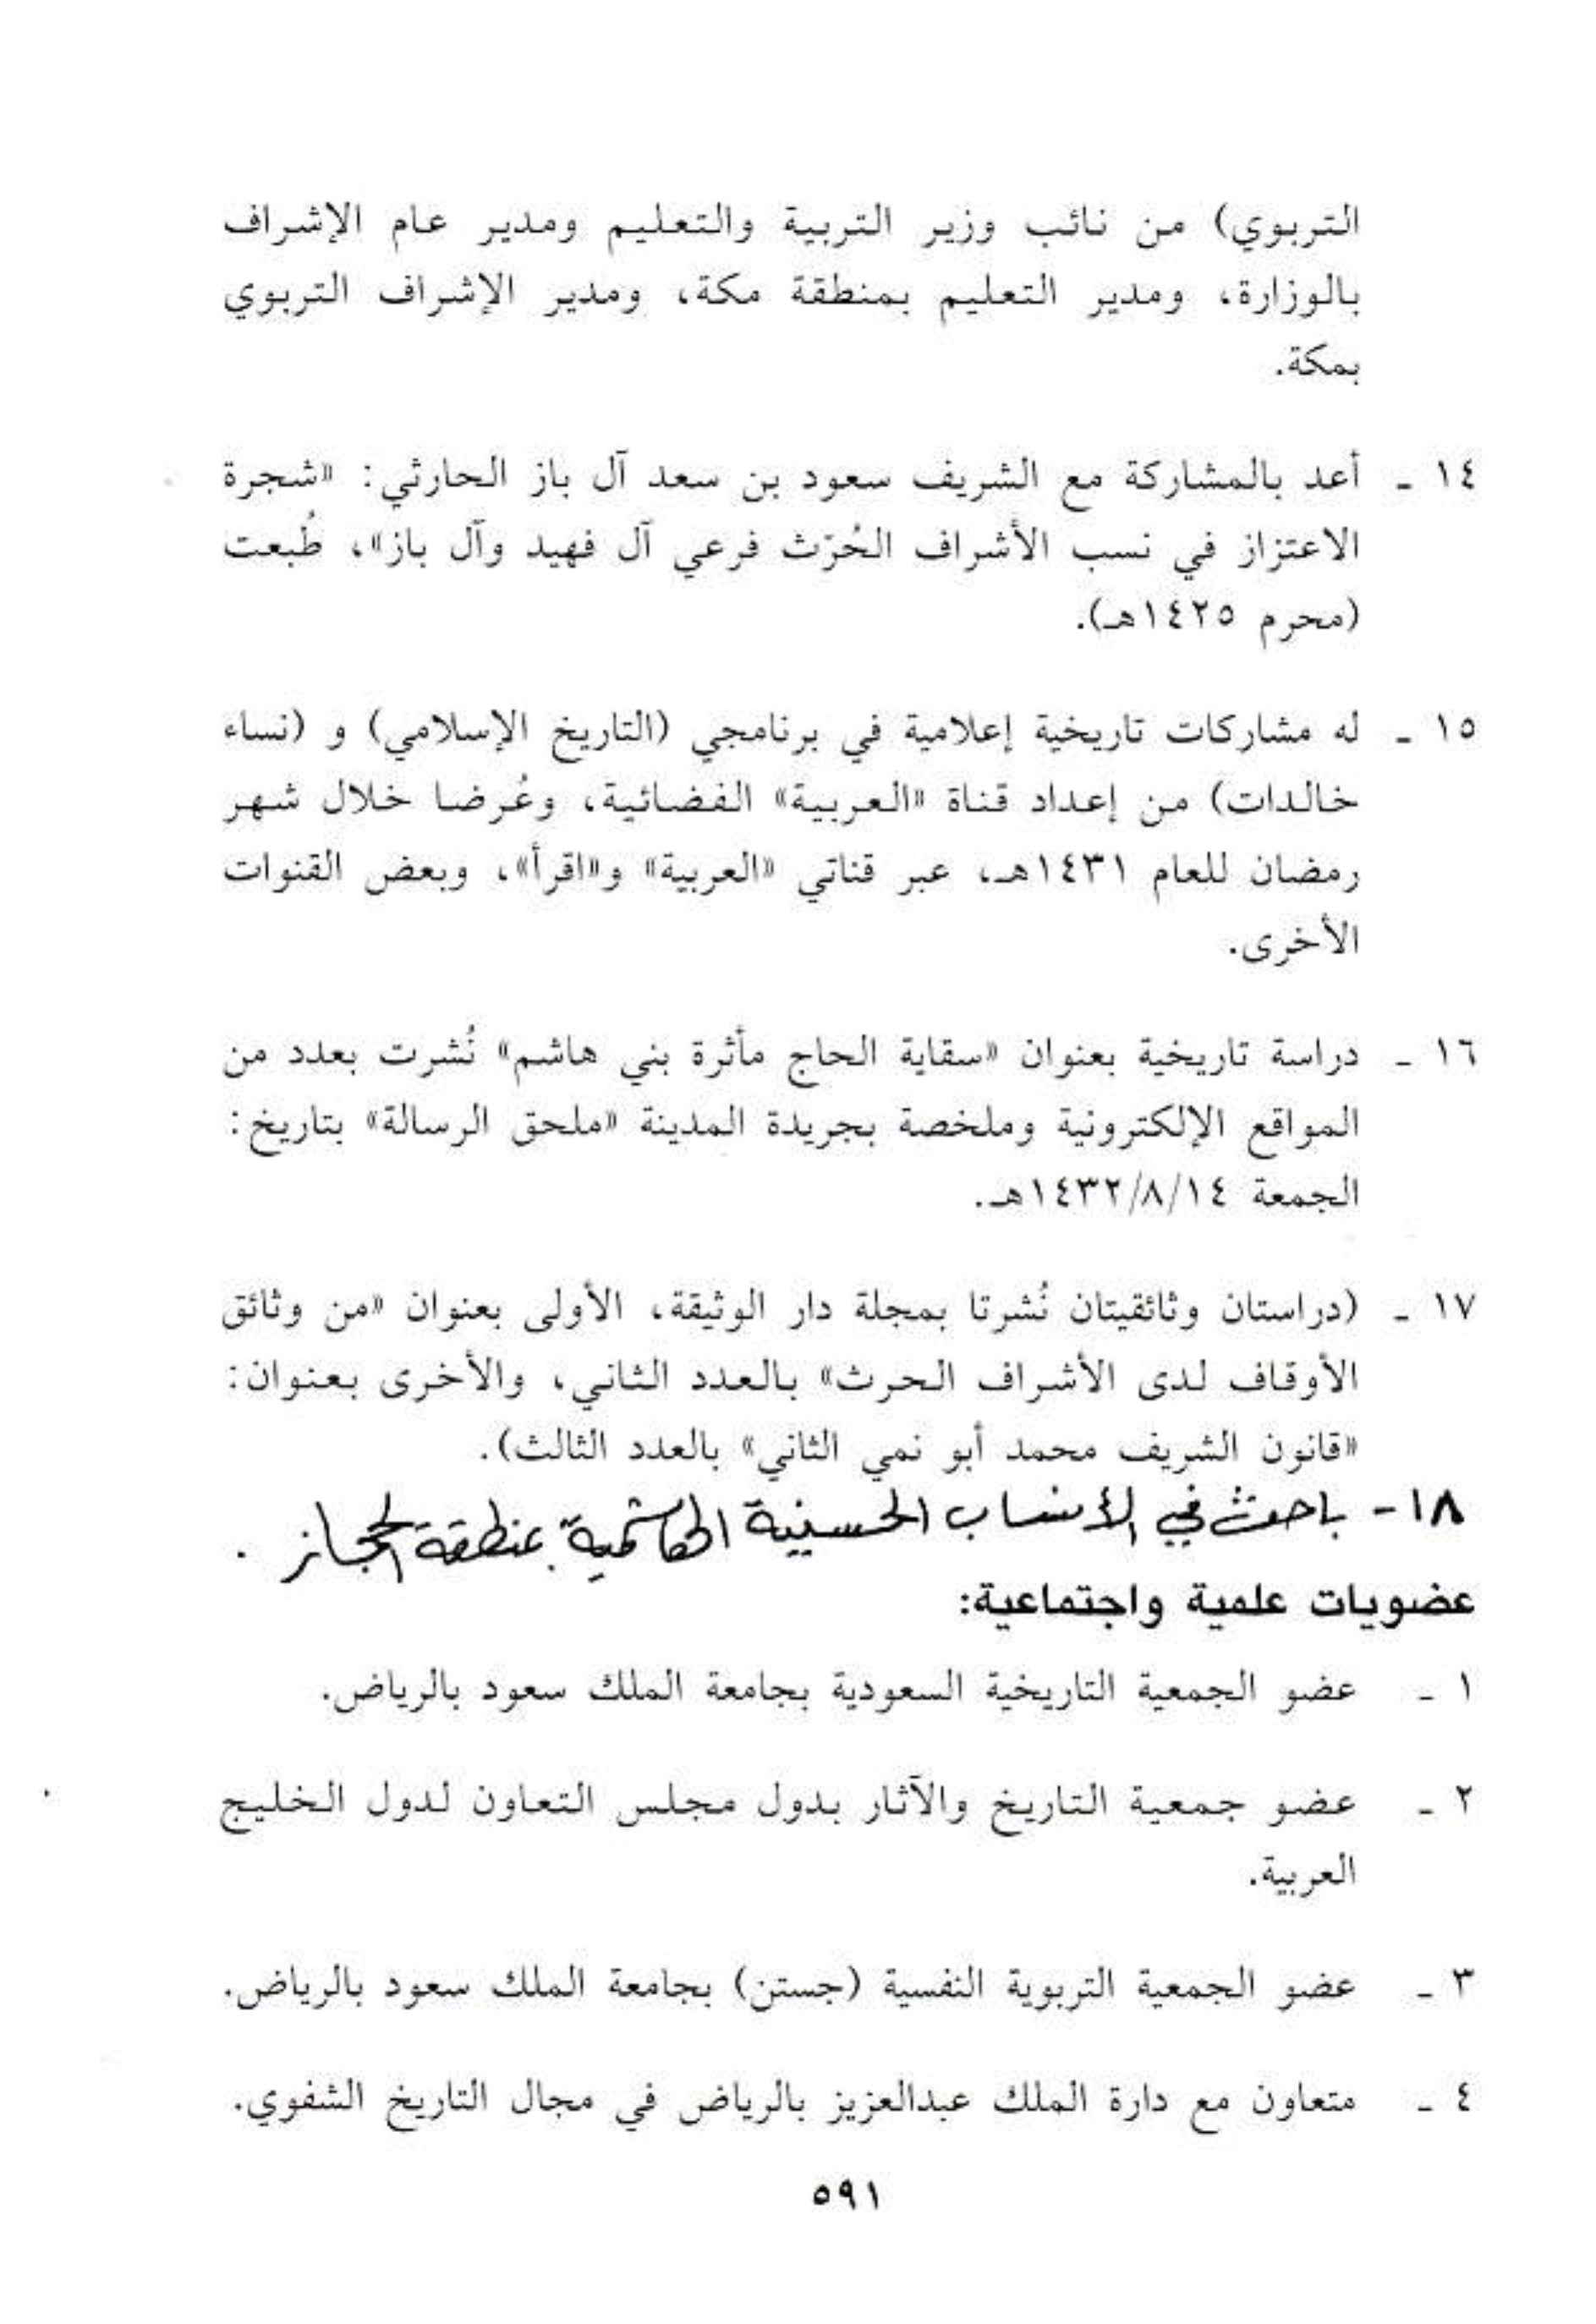 التربوي) من نائب وزير التربية والتعليم ومدير عام الإشراف
بالوزارة، ومدير التعليم بمنطقة مكة، ومدير الإشراف التربوي
بمكة.
١٤ ـ أعد بالمشاركة مع الشريف سعود بن سعد آل باز الحارثي: «شجرة
الاعتزاز في نسب الأشراف الحُرّث فرعي آل فهيد وآل باز»، طُبعت
(محرم ١٤٢٥هـ).
١٥ ـ له مشاركات تاريخية إعلامية في برنامجي (التاريخ الإسلامي) و (نساء
خالدات) من إعداد قناة «العربية» الفضائية، وعُرضا خلال شهر
رمضان للعام ١٤٣١هـ، عبر قناتي «العربية» و«اقرأ»، وبعض القنوات
الأخرى.
١٦ ـ دراسة تاريخية بعنوان «سقاية الحاج مأثرة بني هاشم» نُشرت بعدد من
المواقع الإلكترونية وملخصة بجريدة المدينة «ملحق الرسالة» بتاريخ:
الجمعة ١٤٣٢/٨/١٤هـ.
١٧ ـ (دراستان وثائقيتان نُشرتا بمجلة دار الوثيقة، الأولى بعنوان «من وثائق
الأوقاف لدى الأشراف الحرث» بالعدد الثاني، والأخرى بعنوان:
«قانون الشريف محمد أبو نمي الثاني» بالعدد الثالث).
١٨ - باحث في الأنساب الحسنية الهاشمية بمنطقة الحجاز .
عضويات علمية واجتماعية:
١ ـ عضو الجمعية التاريخية السعودية بجامعة الملك سعود بالرياض.
٢ ـ عضو جمعية التاريخ والآثار بدول مجلس التعاون لدول الخليج
العربية.
٣ ـ عضو الجمعية التربوية النفسية (جستن) بجامعة الملك سعود بالرياض.
٤ ـ متعاون مع دارة الملك عبدالعزيز بالرياض في مجال التاريخ الشفوي.
٥٩١